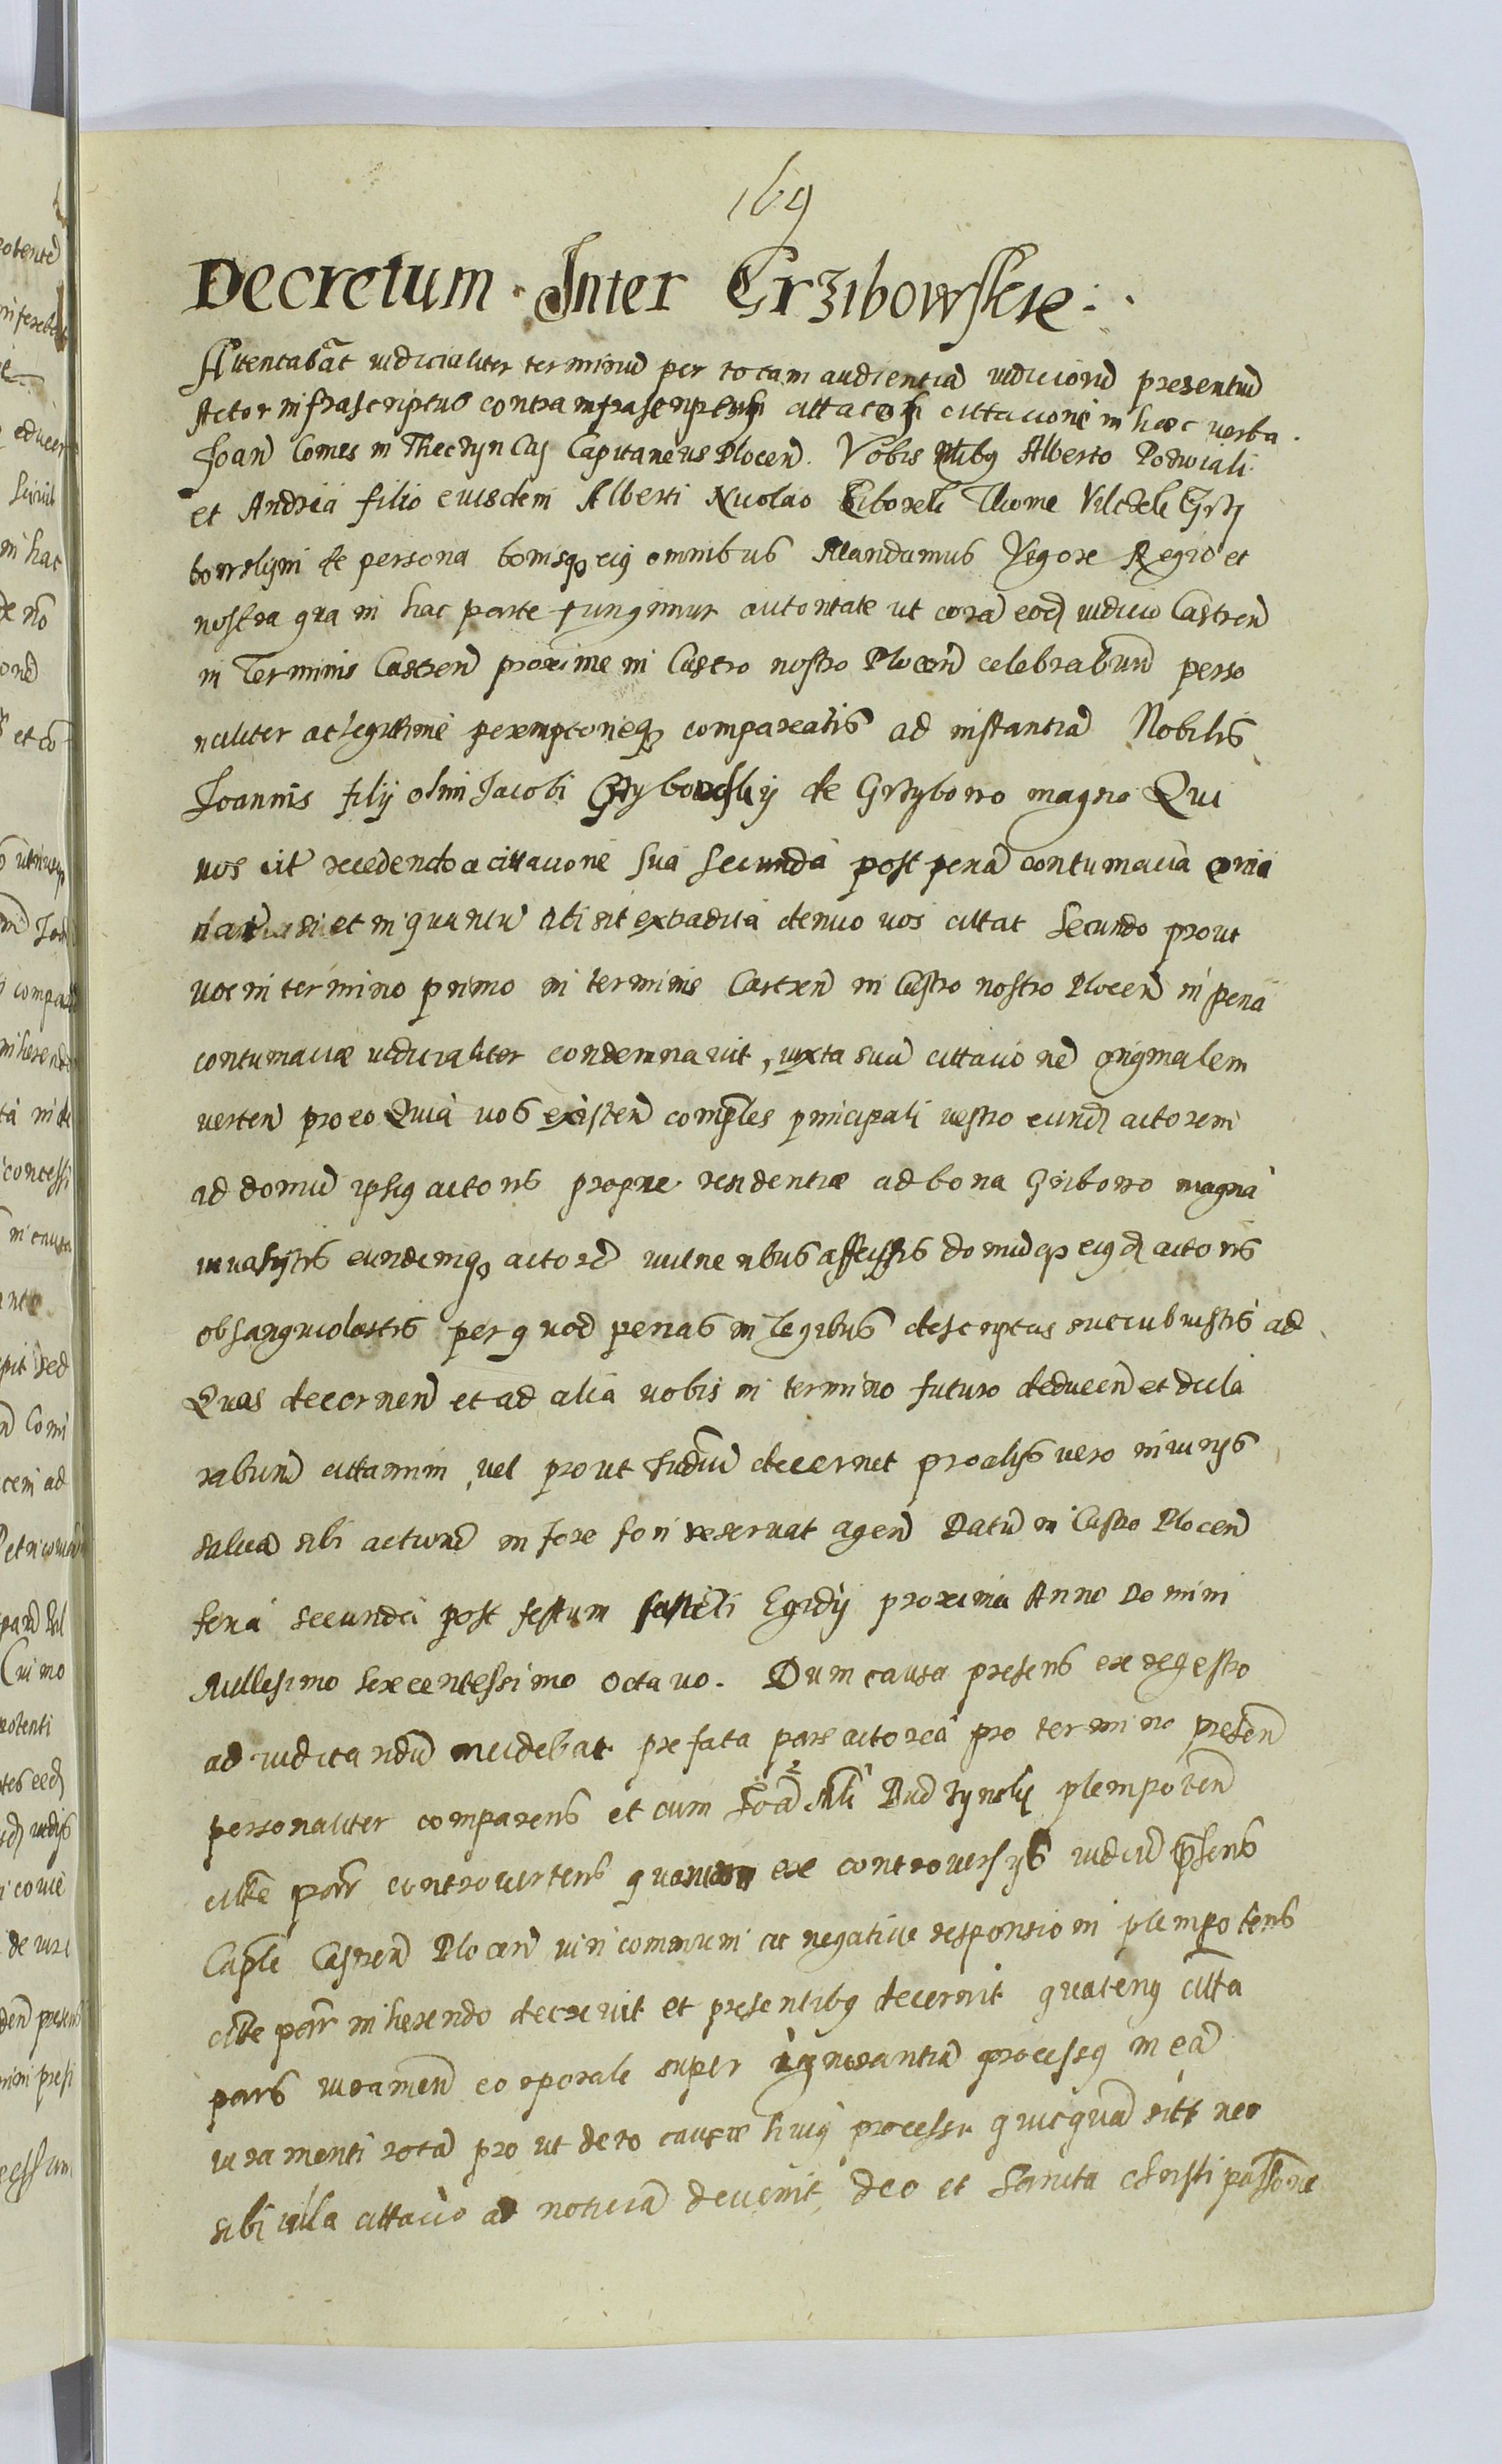 169
Decretum Inter Grzibowskie
Attentabat iudicialiter terminu per totam audientia iudicioru presentiu
Actor infrascriptus contra infrascriptum cittatos cittacione in haec verba.
Joan Comes in Theczyn Cas Capitaneus Plocen. Vobis Nlibus Alberto Podwiali
et Andrea filio euisdem Alberti Nicolao Thome Grzi
bowskym de persona bonisq eius omnibus Mandamus Vigore Regio et
nostra qua in hac parte fungimur autoritate ut cora eod iudicio Castren
in Terminis Castren proxime in Castro nostro Plocen celebraband perso
naliter ac legittime peremptorieq compareatis ad instantia Nobilis
Joannis filij olim Jacobi Grzybowskij de Grzybowo magno Qui
vos cit recedendo a cittacione sua secunda post pena contumacia
si et in quantu alisit extradita denuo vos cittat Secundo prout
vos in termino primo in terminis Castren in Castro nostro Plocen in pena
contumaciae iudicialiter condemnavit, iuxta sua cittacione originalem
verten pro eo Quia vos existen comples principali vestro eund actorem
ad domu ipsius actoris proprie residentiae ad bona Gribowo magna
invasistis eundemq actore vulneribus affecistis domuq eiusd actoris
obsanguiolastis per quod penas in legibus descriptas succubuistis ad
Quas decernen et ad alia vobis in termino futuro deducen et decla
raband cittamini, vel prout Judiu decernet pro alijs vero iniurijs
salua sibi actione in fore fori reservat agen Datu in Castro Plocen
feria secunda post festum sancti Egidij proxima Anno Domini
Millesimo sexcentessimo octavo. Dum causa presens ex regestro
ad iudicandu incidebat prefata pars actorea pro termino presen
personaliter comparens et cum Nli Budzynski plenipoten
citte part controvertens ex controversijs iudiciu psens
Caple Castren Plocen viri communi ac negative responsioni plenipotens
citte part inherendo decrevit et presentibus decernit quatenus citta
pars iuramen corporale super ignorantia processus in ea
iuramenti rota prout de to causae huius processu quicqua sitt nec
sibi ulla cittacio ad noticia devenit, deo et Sancta christi passione